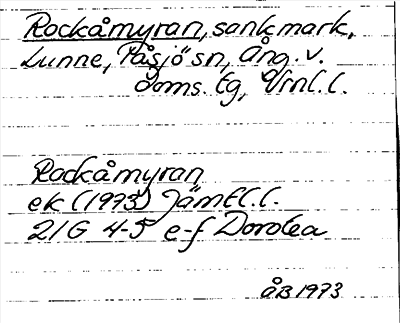 Rockåmyran, sankmark,
Lunne, Tåsjö sn, Ång. v.
Doms. tg, Vrnl. l.
Rockåmyran
ek (1973) Jämtl. l.
21G 4-5 e-f Dorotea
ÅB 1973